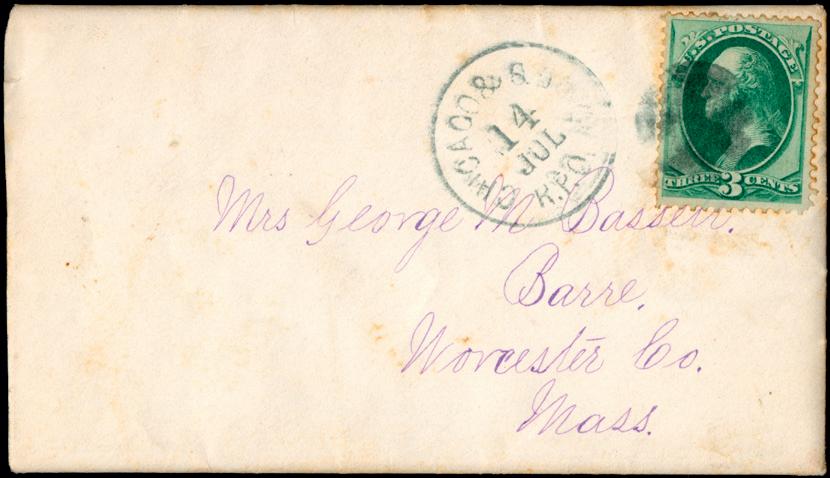 U.S. POSTAGE
THREE 3 CENTS
CHICAGO &
14
JUL
R.P.O.
Mrs George M Bassett.
Barre,
Worcester Co.
Mass.